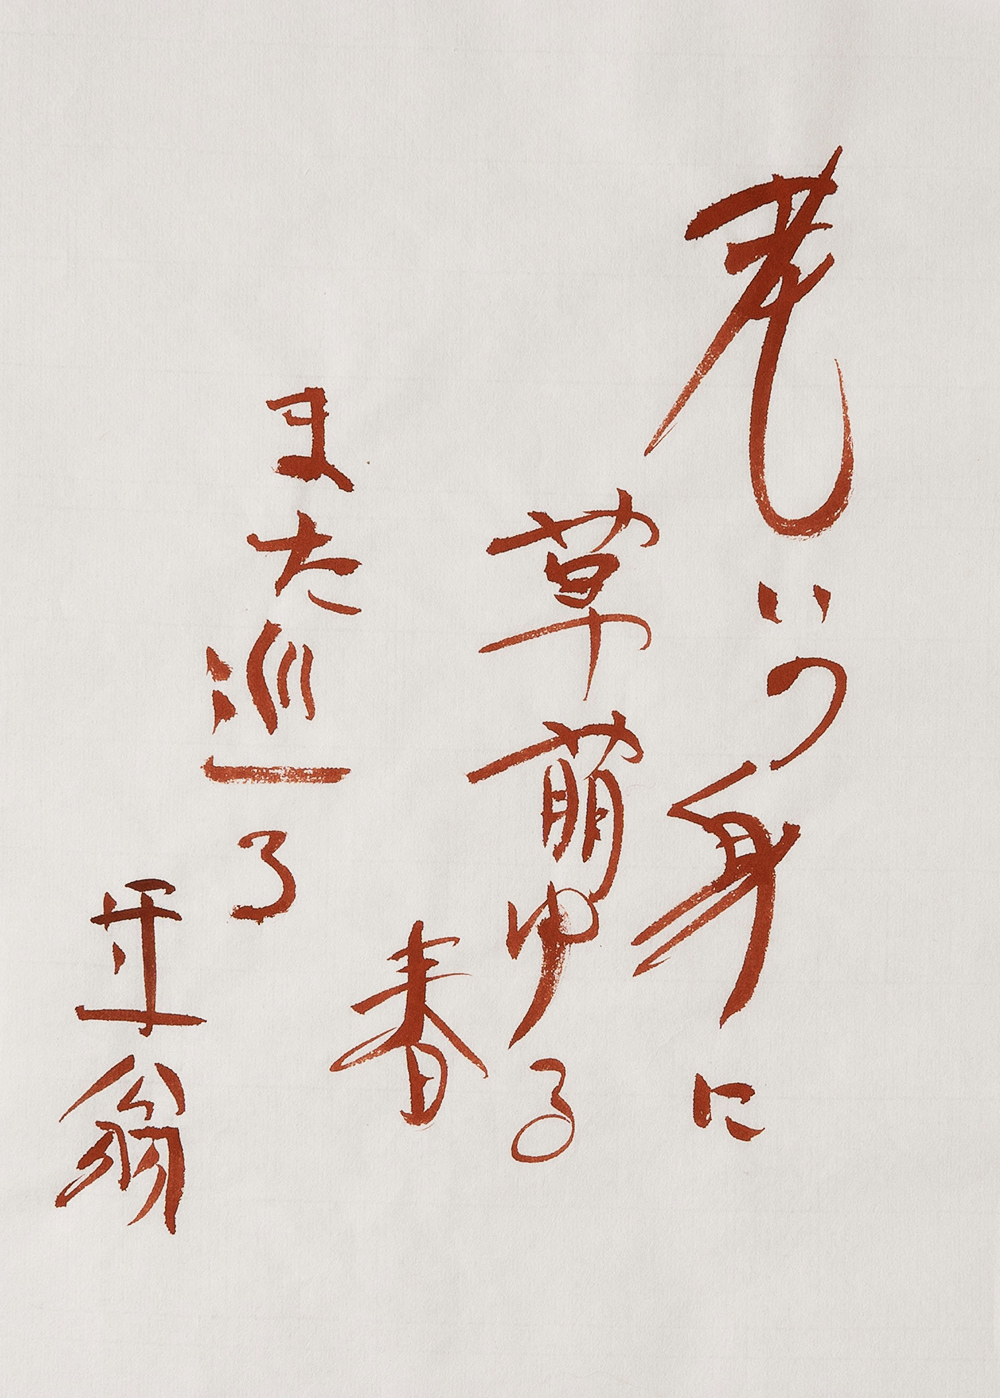 老いの身に
草萌ゆる
春
また巡る
翁